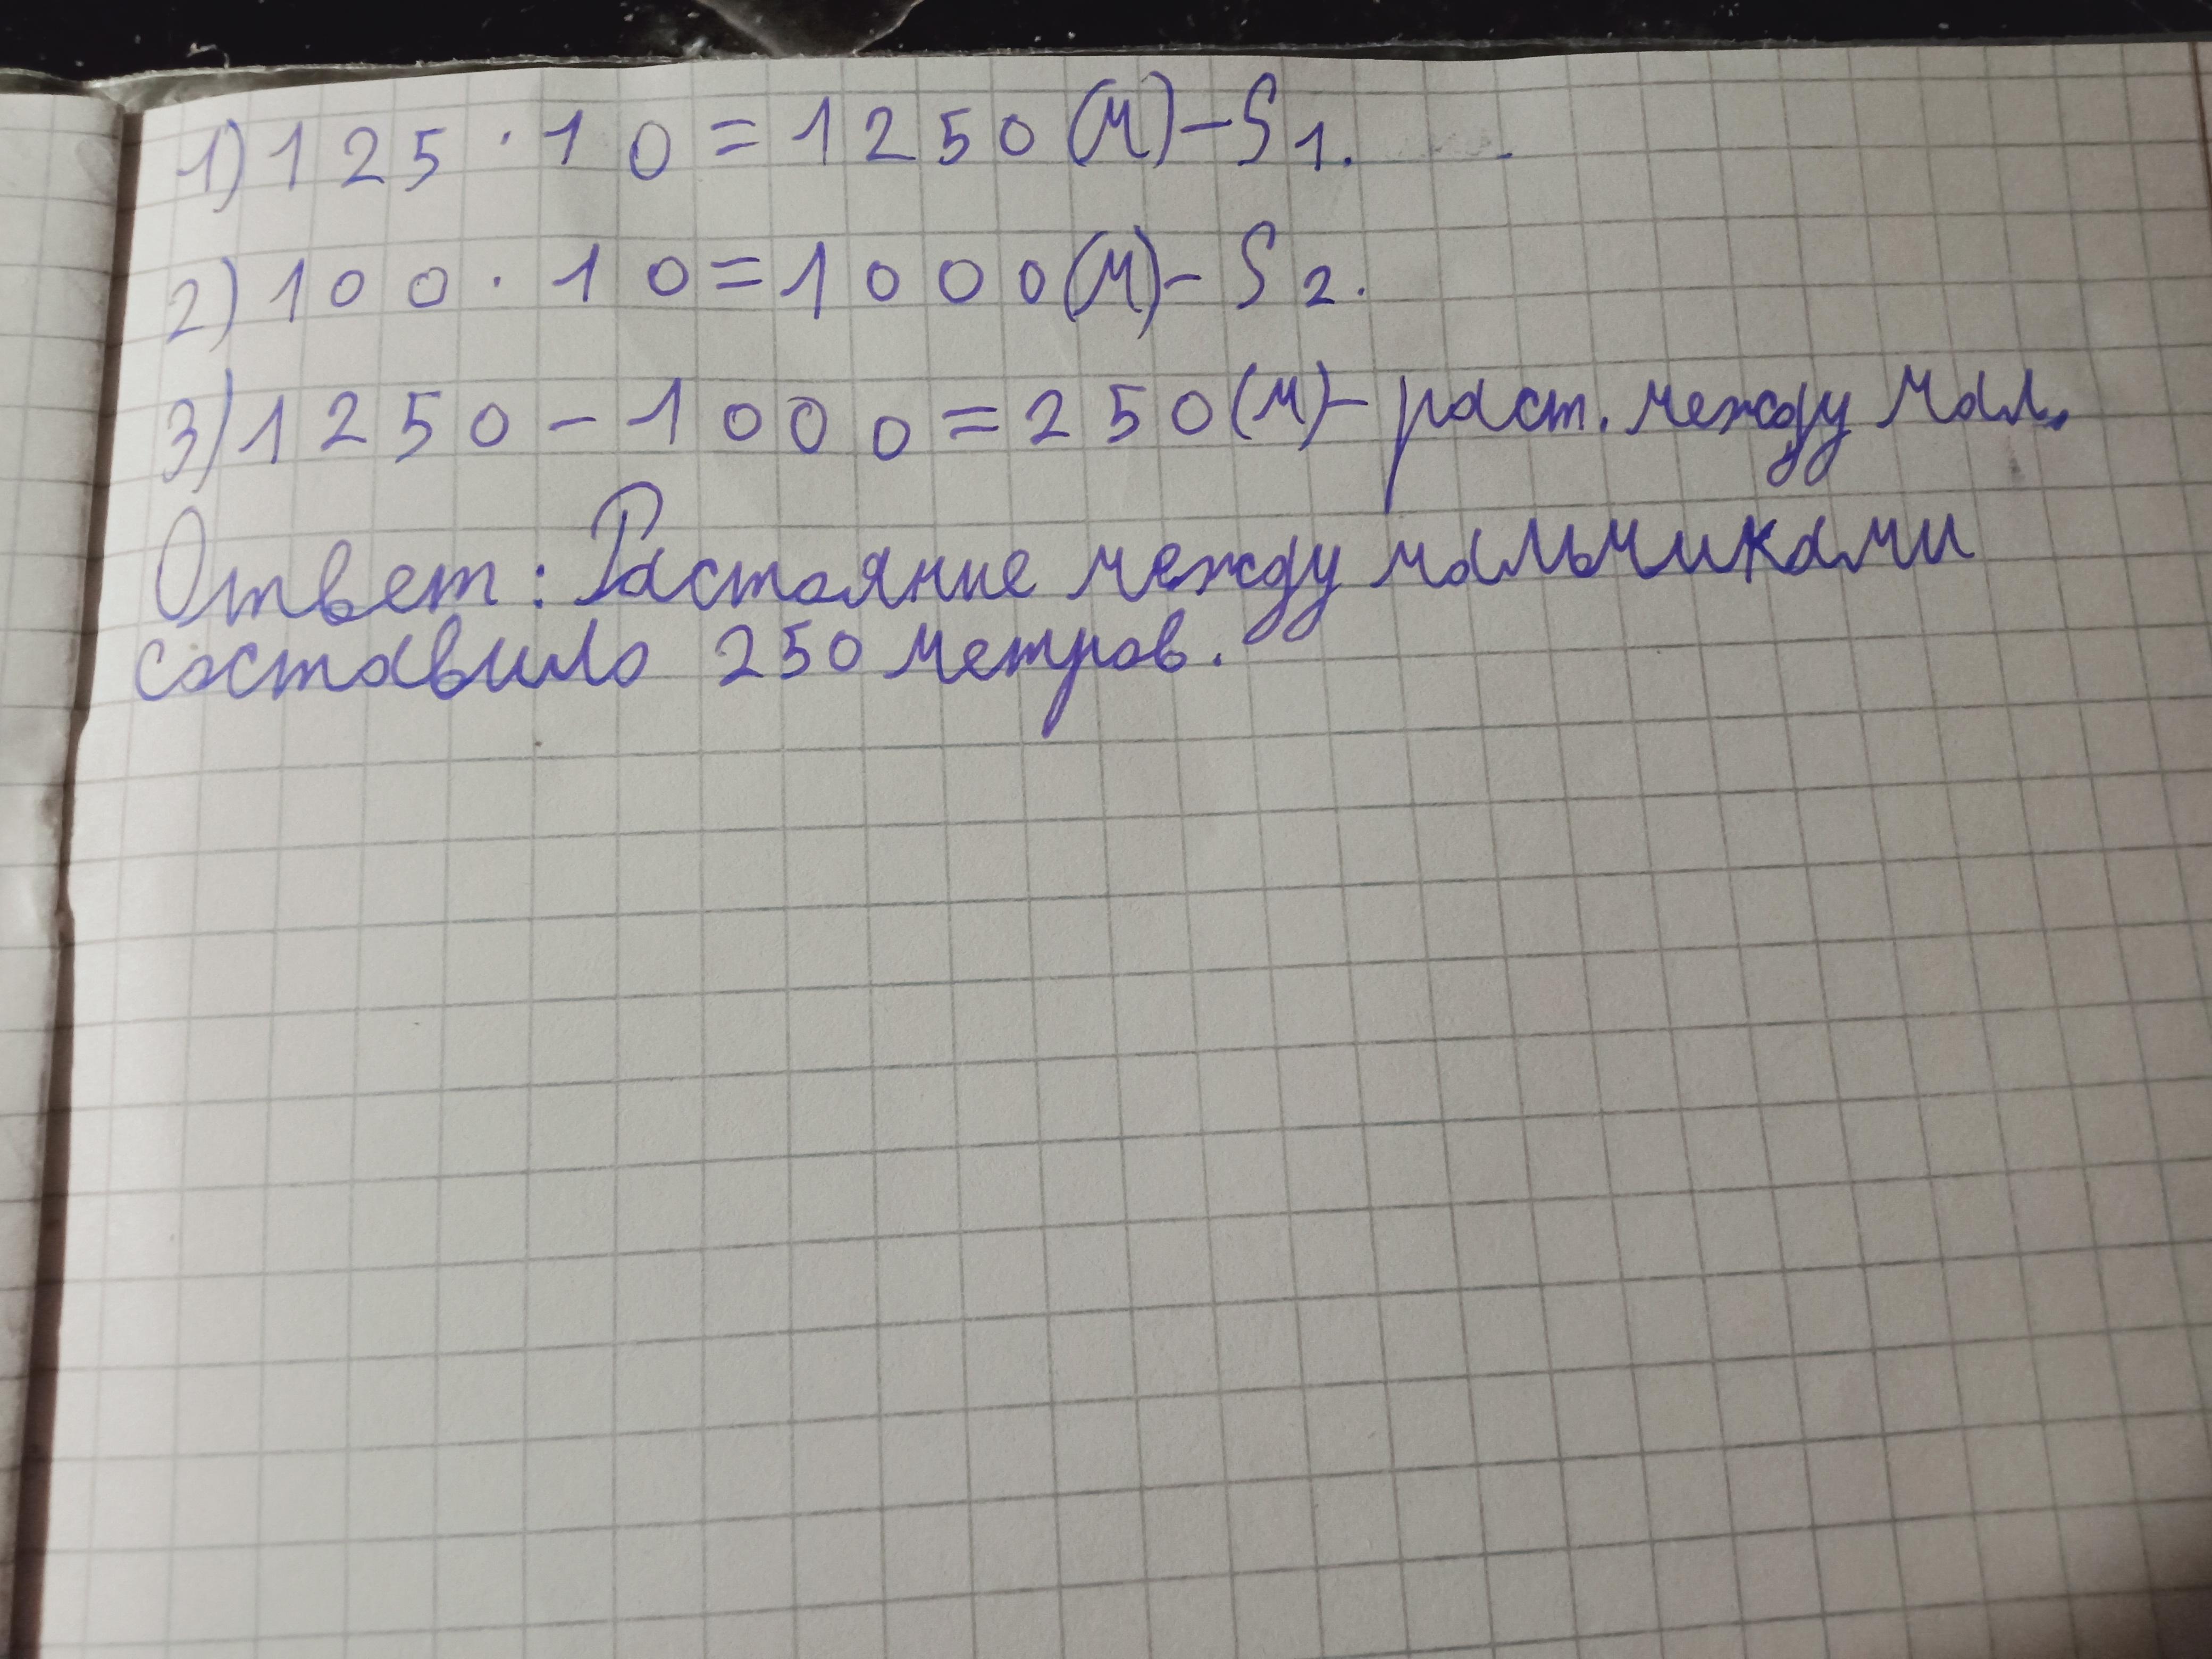 1) 125 · 10 = 1250 (м) - S1.
2) 100 · 10 = 1000 (м) - S2.
3) 1250 - 1000 = 250 (м) - раст. между мал.
Ответ: Растояние между мальчиками
составило 250 метров.